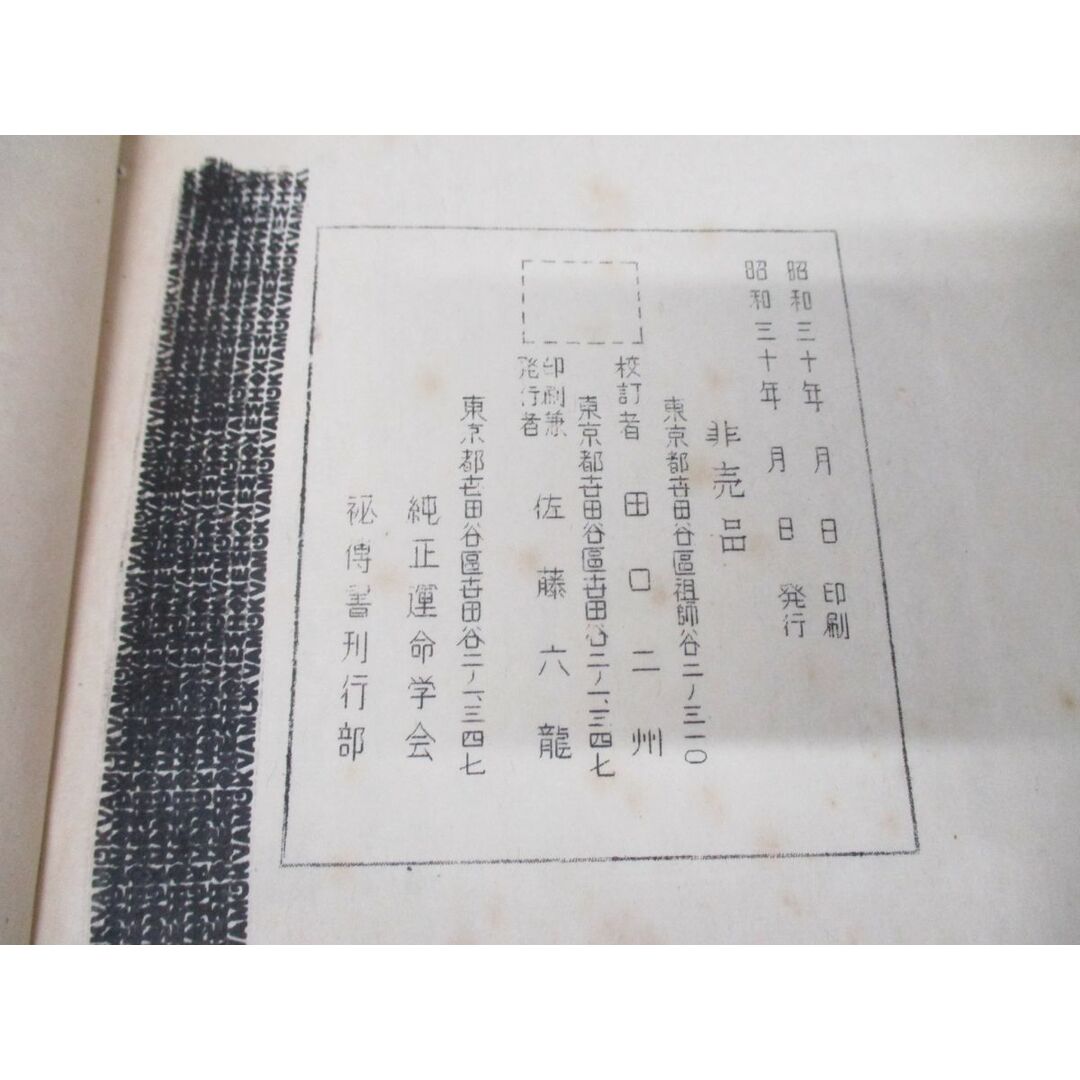 昭和三十年 月 日 印刷
昭和三十年 月 日 発行
非売品
東京都世田谷區祖師谷二ノ三一〇
校訂者 田口二州
東京都世田谷區世田谷二ノ一、三四七
印刷兼発行者 佐藤六龍
東京都世田谷區世田谷二ノ一、三四七
純正運命学会
秘傳書刊行部